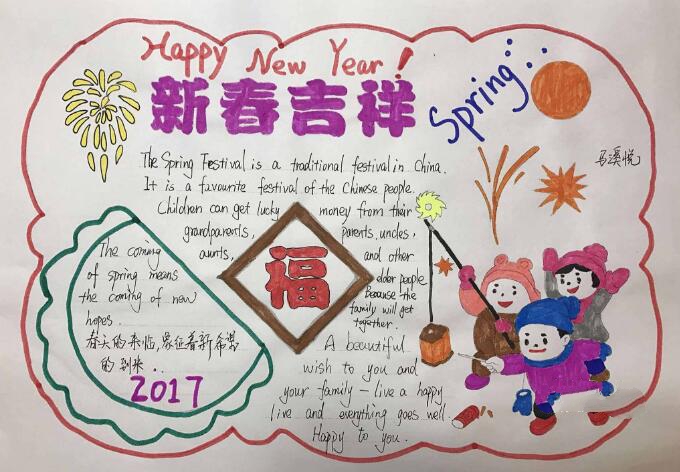 Happy New Year!
新春吉祥
Spring
马溪悦
The Spring Festival is a traditional festival in China.
It is a favourite festival of the Chinese people.
Children can get lucky money from their
grandparents, parents, uncles,
aunts, and other
elder people
Because the
family will get
together.
福
The coming
of spring means
the coming of new
hopes.
春天的来临,象征着新希望
的到来.
2017
A beautiful
wish to you and
your family - live a happy
live and everything goes well.
Happy to you.